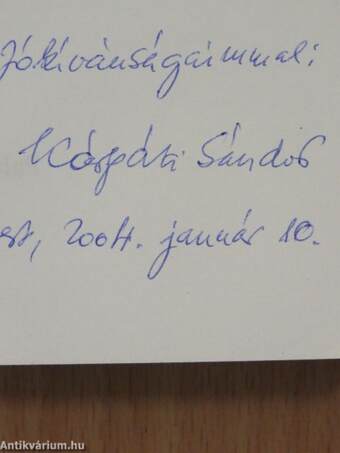 Jókívánságaimmal:
Kárpáti Sándor
est, 2004. január 10.
Antikvárium.hu